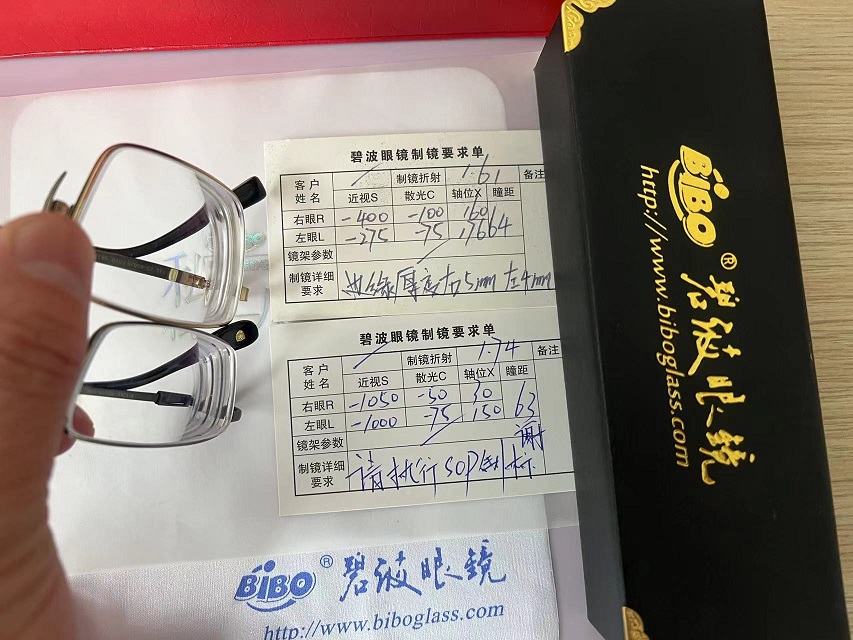 碧波眼镜制镜要求单
客户姓名 制镜折射 1.61 备注
近视S 散光C 轴位X 瞳距
右眼R -400 -100 160
左眼L -275 -75 176 64
镜架参数
制镜详细要求 边缘厚度右5mm 左4mm
碧波眼镜制镜要求单
客户姓名 制镜折射 1.74 备注
近视S 散光C 轴位X 瞳距
右眼R -1050 -50 30
左眼L -1000 -75 150 63
镜架参数
制镜详细要求 请执行SOP 标 谢
BiBO® 碧波眼镜
http://www.biboglass.com
BiBO® 碧波眼镜
http://www.biboglass.com